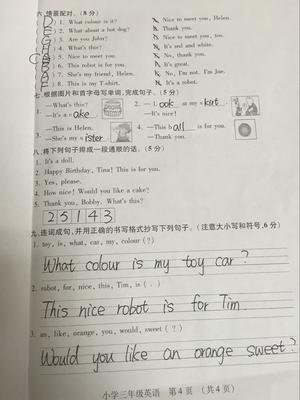 六.情景配对。(8分)
D ) 1. What colour is it? Nice to meet you, Helen.
E ) 2. What about a hot dog? Thank you.
G ) 3. Are you John? Nice to meet you, too.
) 4. What's this? It's red and white.
) 5. Nice to meet you. No, thank you.
) 6. This robot is for you. It's great.
) 7. She's my friend, Helen. No, I'm not. I'm Joe.
) 8. This is my T-shirt. It's a robot.
七.根据图片和首字母写单词,完成句子。(5分)
1. —What's this? 2. —Look at my skirt.
—It's a cake. —It's nice!
3. —This is Helen. 4. —This ball is for you.
—She's my sister. —Thank you.
八.将下列句子排成一段通顺的话。(5分)
1. It's a doll.
2. Happy Birthday, Tina! This is for you.
3. Yes, please.
4. How nice! Would you like a cake?
5. Thank you, Bobby. What's this?
2 5 1 4 3
九.连词成句,并用正确的书写格式抄写下列句子。(注意大小写和符号,6分)
1. toy, is, what, car, my, colour (?)
What colour is my toy car?
2. robot, for, nice, this, Tim, is (.)
This nice robot is for Tim.
3. an, like, orange, you, would, sweet (?)
Would you like an orange sweet?
小学三年级英语 第4页 (共4页)